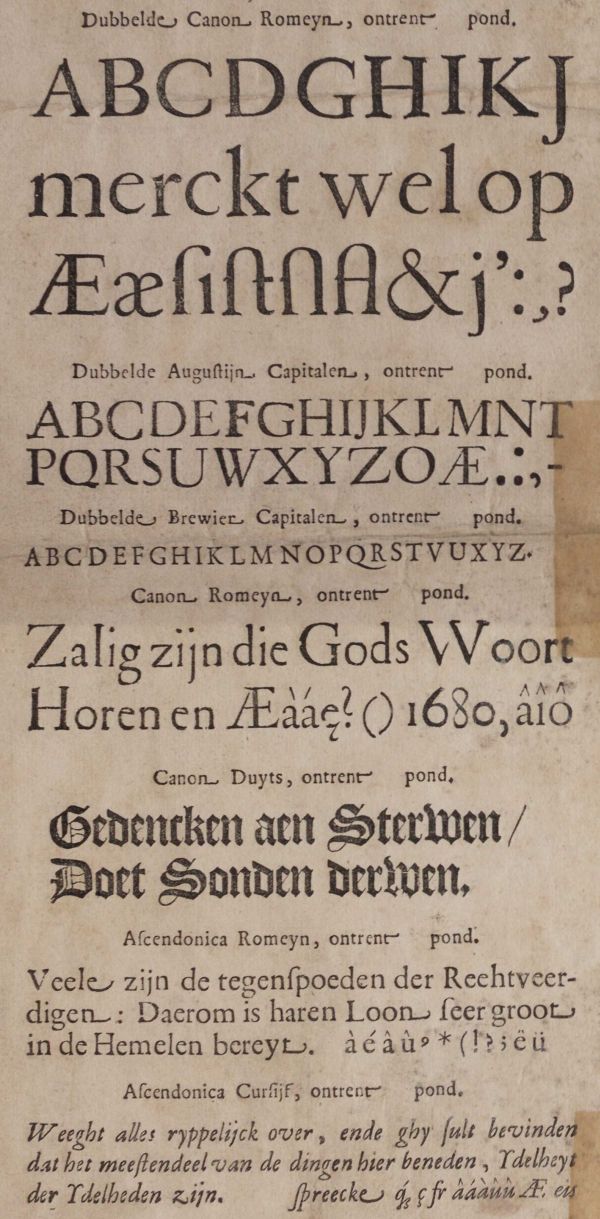 Dubbelde Canon Romeyn, ontrent pond.
ABCDGHIKJ
merckt wel op
Ææſiſtſlſl&j’:,?
Dubbelde Auguſtijn Capitalen, ontrent pond.
ABCDEFGHIJKLMNT
PQRSUWXYZOÆ.:,-
Dubbelde Brevier Capitalen, ontrent pond.
ABCDEFGHIKLMNOPQRSTVUXYZ.
Canon Romeyn, ontrent pond.
Zalig zijn die Gods Woort
Horen en Æàáę?() 1680, âîô
Canon Duyts, ontrent pond.
Gedencken aen Sterven/
Doet Sonden derven.
Aſcendonica Romeyn, ontrent pond.
Veele zijn de tegenſpoeden der Reehtveer-
digen: Daerom is haren Loon ſeer groot
in de Hemelen bereyt. àéâû*(!?;ëü
Aſcendonica Curſijf, ontrent pond.
Weeght alles ryppelijck over, ende ghy ſult bevinden
dat het meeſtendeel van de dingen hier beneden, Ydelheyt
der Ydelheden zijn. ſpreecke ç ſr âáàùû Æ. eis